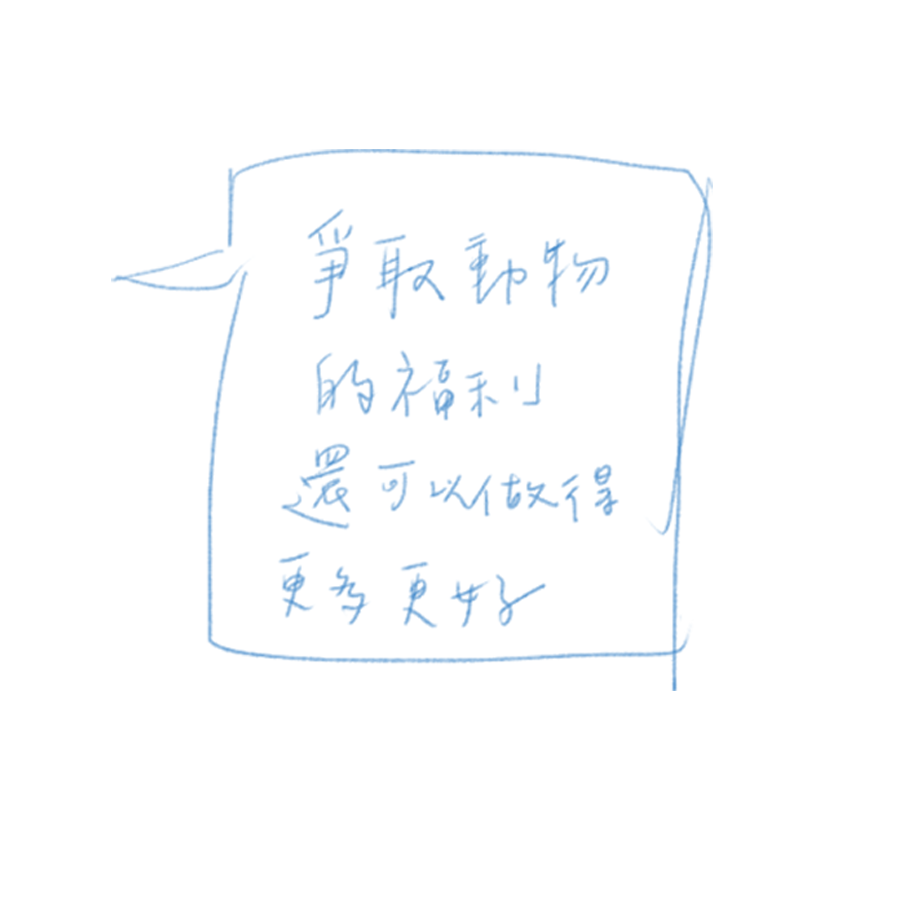 爭取動物
的福利
還可以做得
更多更好